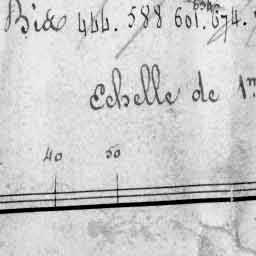 Bis 444. 588 601. 674.
Echelle de 1m
40 50